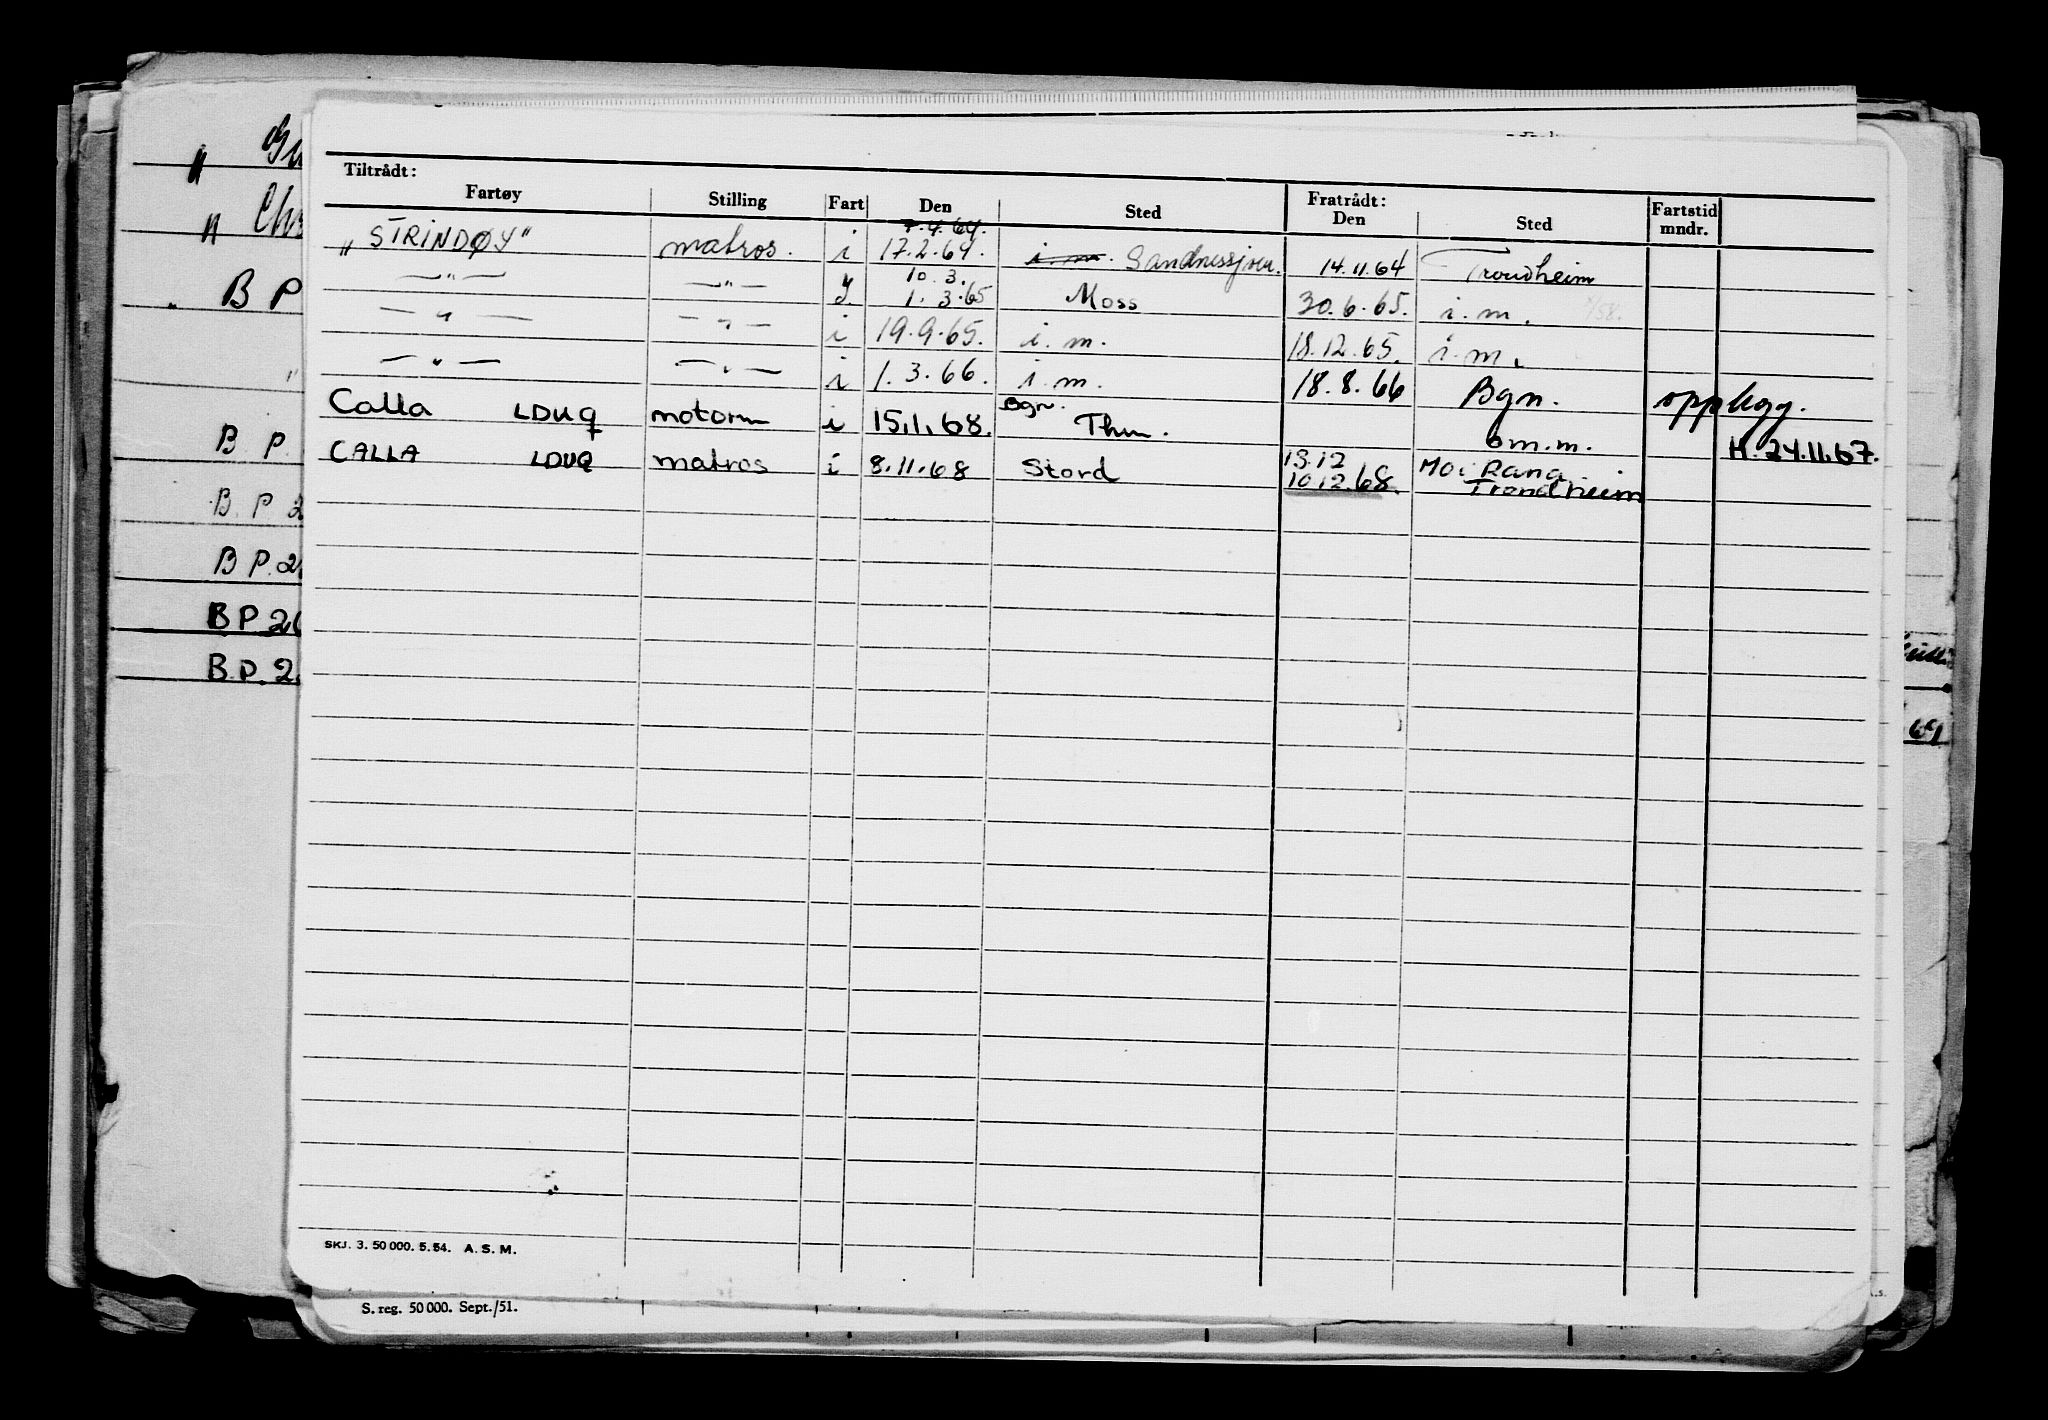 Tiltrådt: Fratrådt:
Fartøy Stilling Fart Den Sted Den Sted Fartstid mndr.
7.4.64.
„STRINDØY" matros. i 17.2.64. i.m. Sandnessjøen. 14.11.64 Trondheim
10.3.
—"— —"— y 1.3.65 Moss 30.6.65. i.m.
—"— —"— i 19.9.65. i.m. 18.12.65. i.m.
—"— —"— i 1.3.66. i.m. 18.8.66 Bgn. opplegg.
Bgn.
Calla LDUQ motorm i 15.1.68. Thm. om.m. H. 24.11.67.
13.12 Mo i Rana
CALLA LDUQ matros i 8.11.68 Stord 10.12.68. Trondheim
SKJ. 3. 50 000. 5. 54. A. S. M.
S. reg. 50 000. Sept./51.
B P
B P.
B. P. 2
B P. 2
B P 2
B.P. 2
69